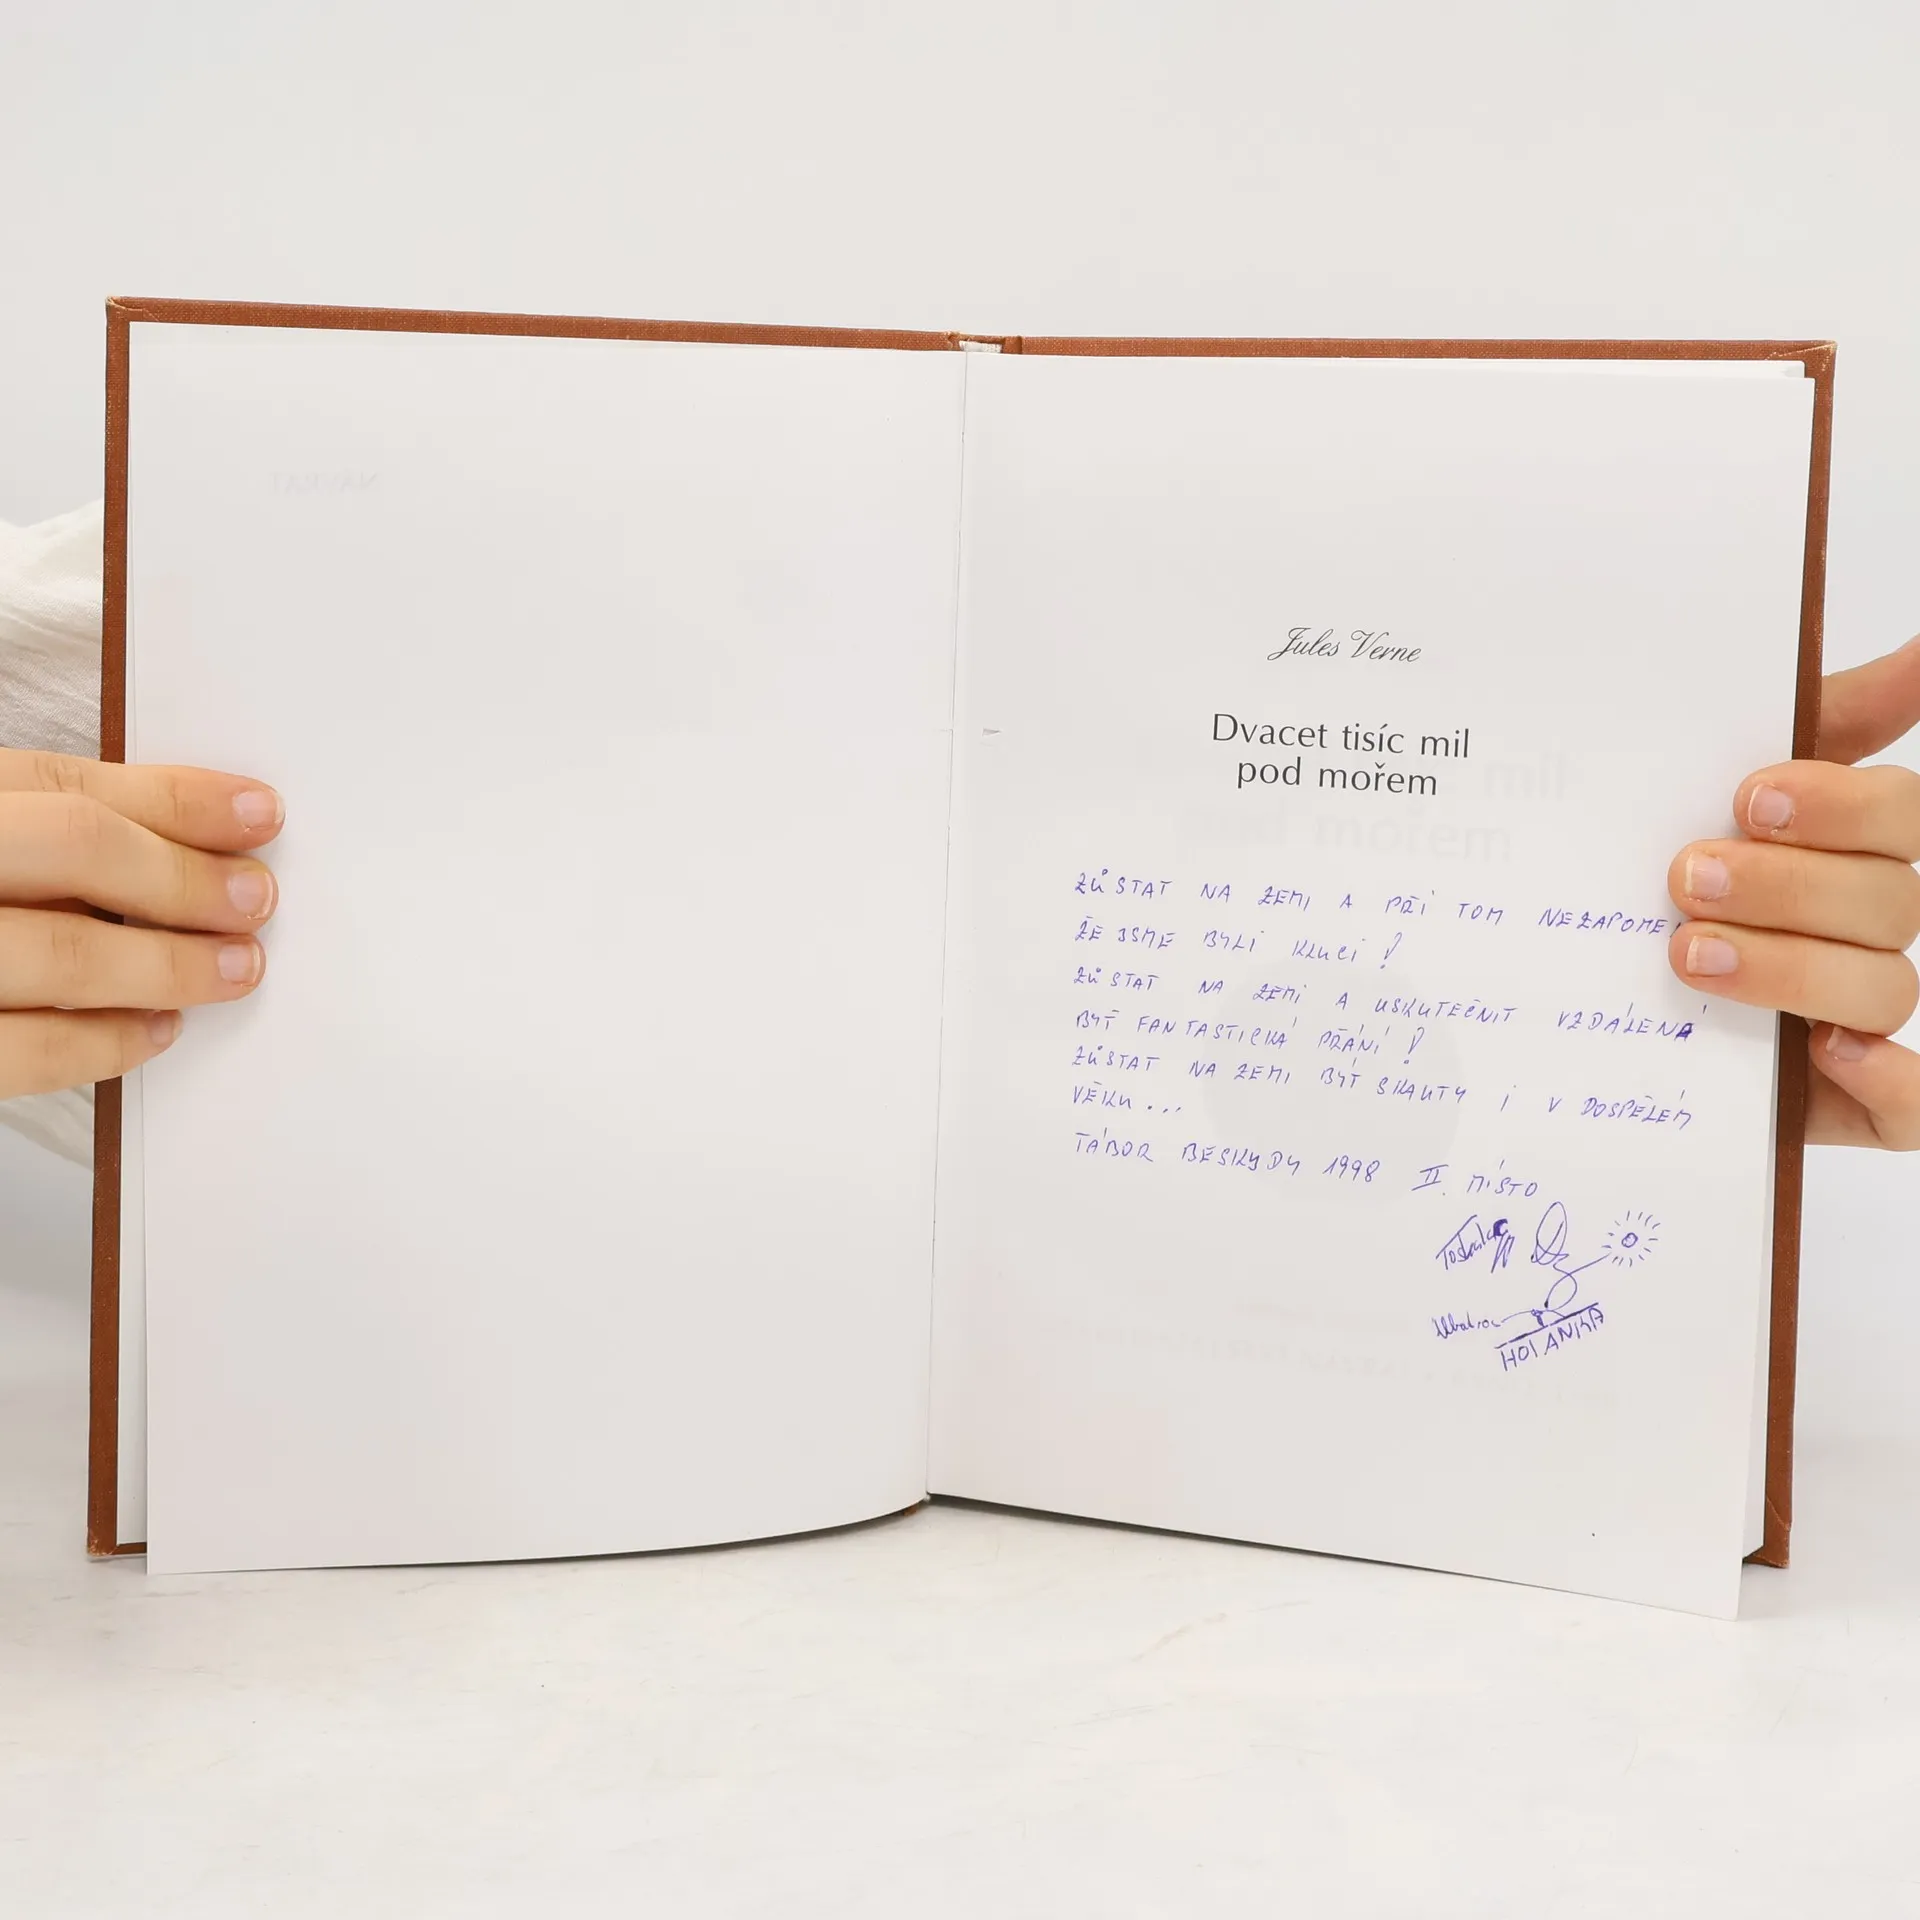 Jules Verne
Dvacet tisíc mil
pod mořem
ZŮSTAT NA ZEMI A PŘI TOM NEZAPOME
ŽE JSME BYLI KLUCI!
ZŮSTAT NA ZEMI A USKUTEČNIT VZDÁLENÁ
BYŤ FANTASTICKÁ PŘÁNÍ!
ZŮSTAT NA ZEMI BÝT SKAUTY I V DOSPĚLÉM
VĚKU...
TÁBOR BESKYDY 1998 II. MÍSTO
HOLANKA